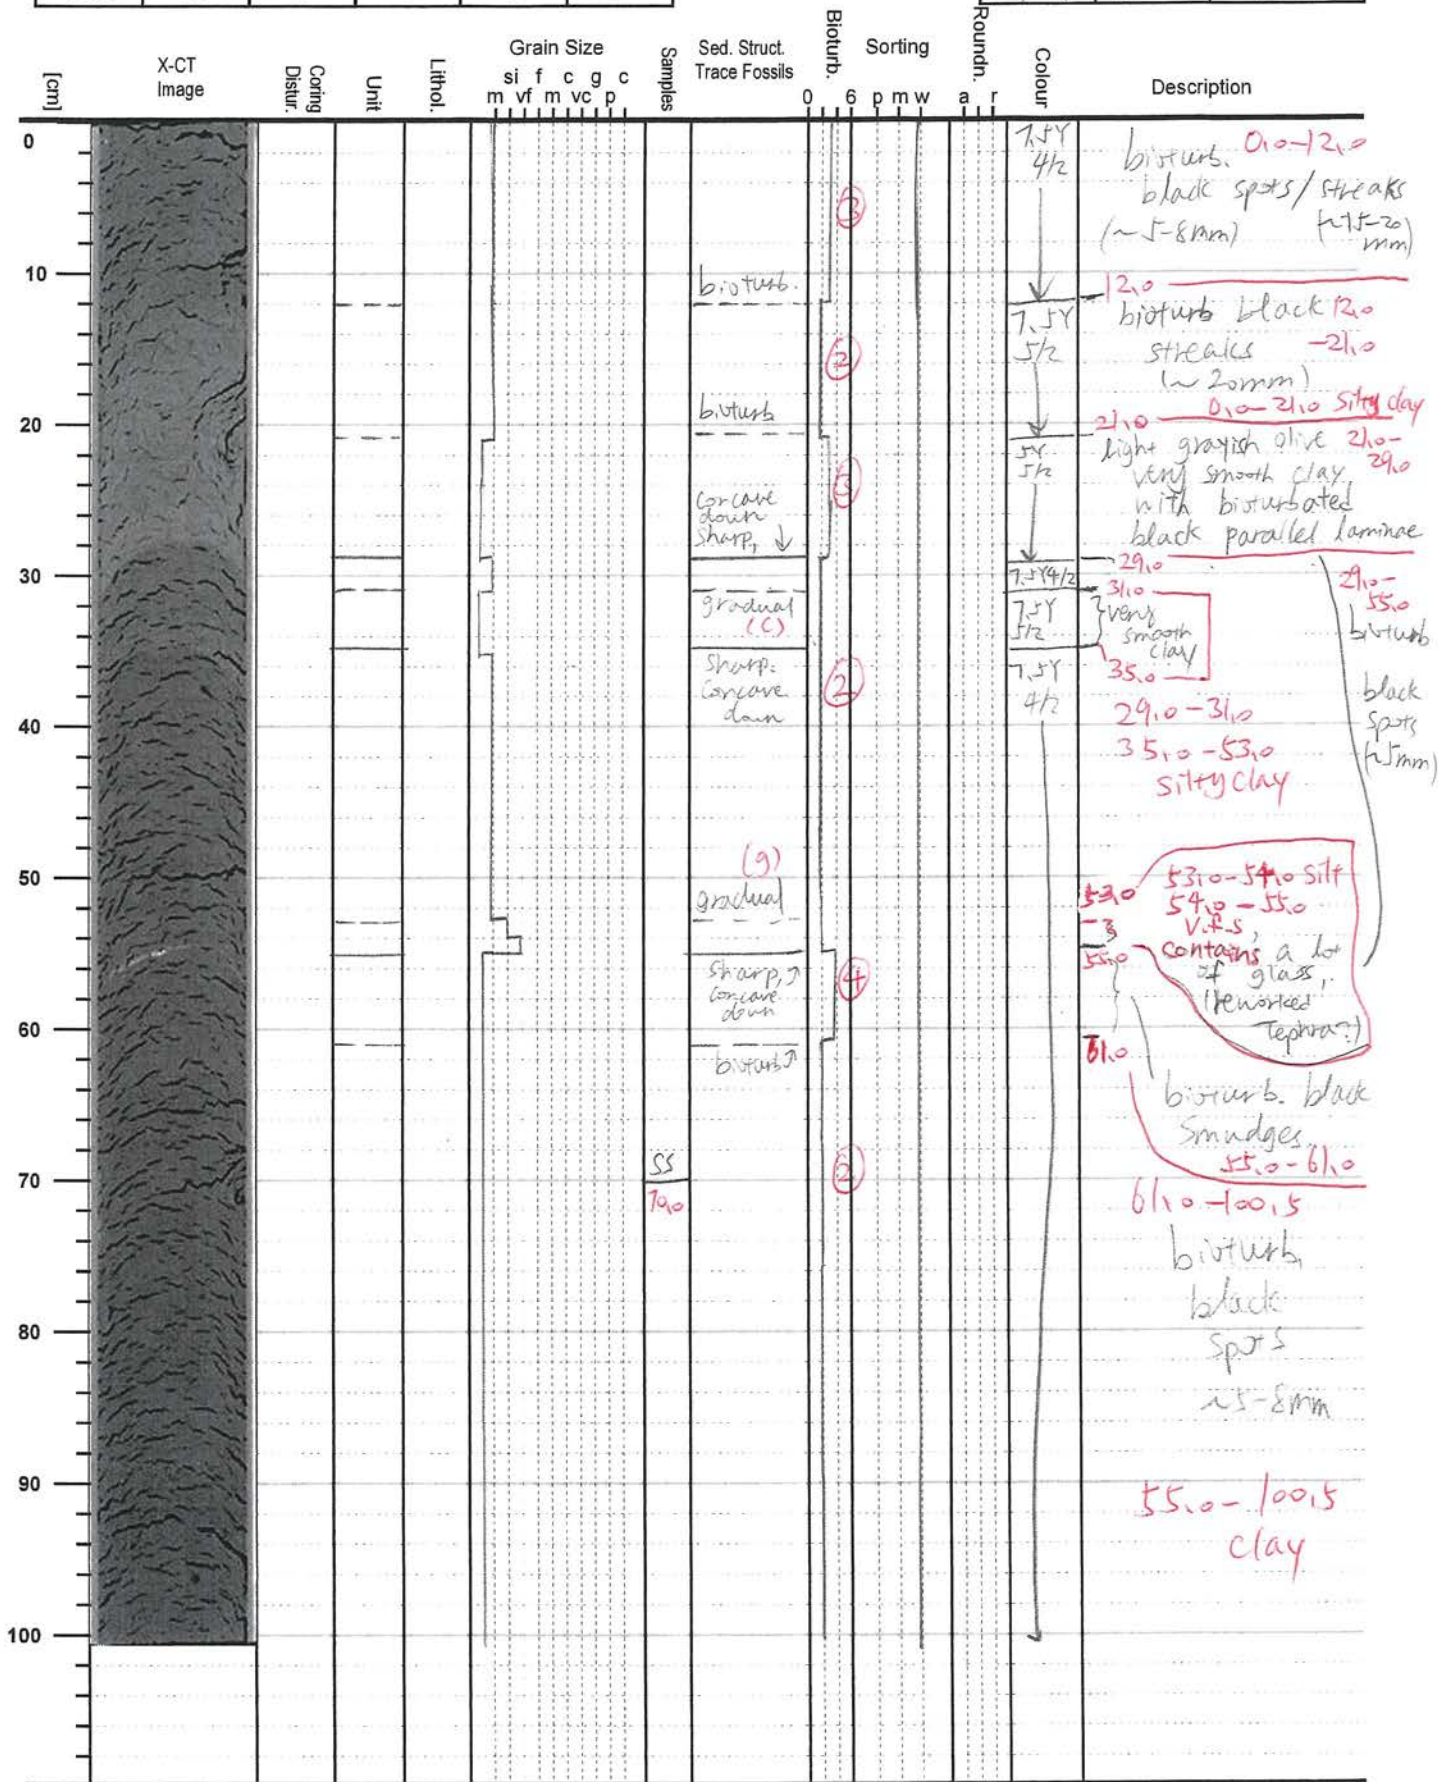 [cm]
X-CT
Image
Coring
Distur.
Unit
Lithol.
Grain Size
si f c g c
m vf m vc p
Samples
Sed. Struct.
Trace Fossils
Bioturb.
0 6
Sorting
p m w
Roundn.
a r
Colour
Description
0
10
20
30
40
50
60
70
80
90
100
SS
70,0
bioturb.
bioturb
Concave
down
Sharp, ↓
gradual
(c)
Sharp.
Concave
down
(g)
gradual
Sharp, ↑
Concave
down
bioturb ↑
3
2
3
2
4
2
7.5Y
4/2
7.5Y
5/2
5Y
5/2
7.5Y4/2
7.5Y
5/2
7.5Y
4/2
bioturb. 0,0-12,0
black spots/streaks
(~5-8mm) (~15-20
mm)
12,0
bioturb black 12,0
streaks -21,0
(~20mm)
0,0-21,0 Silty clay
21,0
light grayish olive 21,0-
29,0
very smooth clay,
with bioturbated
black parallel laminae
29,0
31,0
very
smooth
clay
35,0
29,0-
55,0
bioturb
black
spots
(~5mm)
29,0-31,0
35,0-53,0
silty clay
53,0
53,0-54,0 Silt
54,0-55,0
V.f.s,
contains a lot
of glass,
(reworked
Tephra?)
55,0
61,0
bioturb. black
Smudges
55,0-61,0
61,0-100,5
bioturb,
black
spots
~5-8mm
55,0-100,5
clay